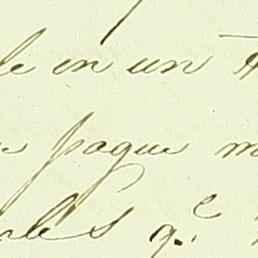 le en un
pague m
les q.e